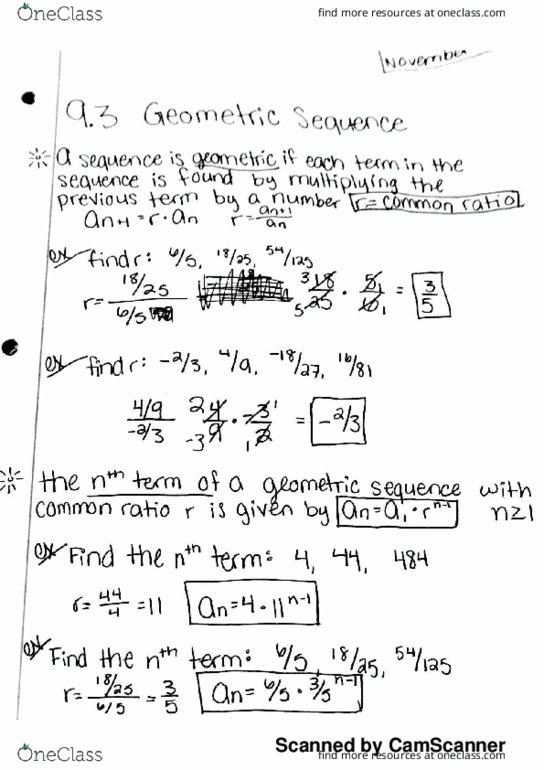 OneClass
find more resources at oneclass.com
November
9.3 Geometric Sequence
a sequence is geometric if each term in the
sequence is found by multiplying the
previous term by a number r=common ratio
an+1=r·an r=an+1/an
ex find r: 6/5, 18/25, 54/125
r= 18/25 / 6/5 3 18/5 25 · 5 1/6 1 = 3/5
ex find r: -2/3, 4/9, -18/27, 16/81
4/9 / -2/3 2 4/-3 9 · -3 1/1 2 = -2/3
the nth term of a geometric sequence with
common ratio r is given by an=a1·r^n-1 n≥1
ex Find the nth term: 4, 44, 484
r= 44/4 =11 an=4·11^n-1
ex Find the nth term: 6/5, 18/25, 54/125
r= 18/25 / 6/5 = 3/5 an=6/5·3/5^n-1
Scanned by CamScanner
OneClass
find more resources at oneclass.com